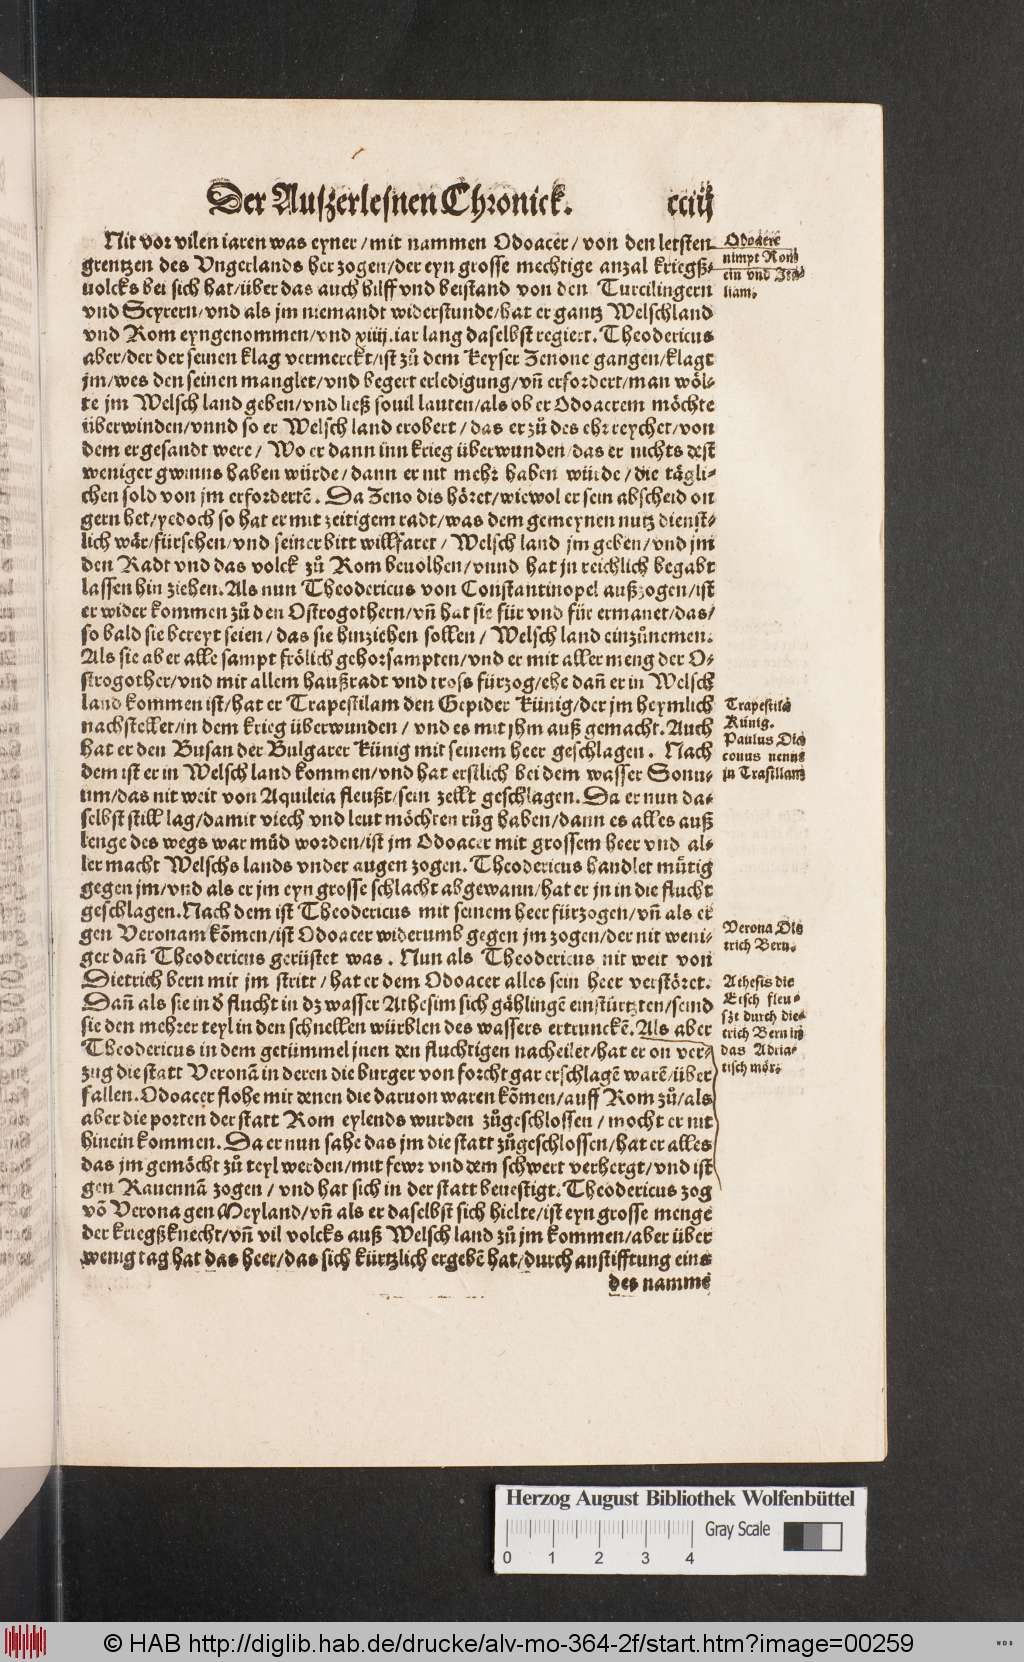 Der Auſzerleſnen Chronick. cciij
Nit vor vilen iaren was eyner / mit nammen Odoacer / von den letſten
grentzen des Vngerlands her zogen / der eyn groſſe mechtige anzal kriegß⸗
uolcks bei ſich hat / über das auch hilff vnd beiſtand von den Turcilingern
vnd Scyrern / vnd als jm niemandt widerſtunde / hat er gantz Welſchland
vnd Rom eyngenommen / vnd xiiij. iar lang daſelbſt regiert. Theodericus
aber / der der ſeinen klag vermerckt / iſt zů dem Keyſer Zenone gangen / klagt
jm / wes den ſeinen manglet / vnd begert erledigung / vñ erfordert / man wöl⸗
te jm Welſch land geben / vnd ließ ſouil lauten / als ob er Odoacrem möchte
überwinden / vnnd ſo er Welſch land erobert / das er zů des ehr reychet / von
dem er geſandt were / Wo er dann inn krieg überwunden / das er nichts deſt
weniger gwinns haben würde / dann er nit mehr haben würde / die tägli⸗
chen ſold von jm erfordertē. Da Zeno dis höret / wiewol er ſein abſcheid on
gern het / yedoch ſo hat er mit zeitigem radt / was dem gemeynen nutz dienſt⸗
lich wär / fürſehen / vnd ſeiner bitt willfaret / Welſch land jm geben / vnd jm
den Radt vnd das volck zů Rom beuolhen / vnnd hat jn reichlich begabt
laſſen hin ziehen. Als nun Theodericus von Conſtantinopel außzogen / iſt
er wider kommen zů den Oſtrogothern / vñ hat ſie für vnd für ermanet / das /
ſo bald ſie bereyt ſeien / das ſie hinziehen ſollen / Welſch land einzůnemen.
Als ſie aber alle ſampt frölich gehorſampten / vnd er mit aller meng der O⸗
ſtrogother / vnd mit allem haußradt vnd tross fürzog / ehe dañ er in Welſch
land kommen iſt / hat er Trapeſtilam den Gepider Künig / der jm heymlich
nachſtellet / in dem krieg überwunden / vnd es mit jhm auß gemacht. Auch
hat er den Buſan der Bulgarer Künig mit ſeinem heer geſchlagen. Nach
dem iſt er in Welſch land kommen / vnd hat erſtlich bei dem waſſer Sonu⸗
um / das nit weit von Aquileia fleußt / ſein zellt geſchlagen. Da er nun da⸗
ſelbſt ſtill lag / damit viech vnd leut möchten růg haben / dann es alles auß
lenge des wegs war můd worden / iſt jm Odoacer mit groſſem heer vnd al⸗
ler macht Welſchs lands vnder augen zogen. Theodericus handlet můtig
gegen jm / vnd als er jm eyn groſſe ſchlacht abgewann / hat er jn in die flucht
geſchlagen. Nach dem iſt Theodericus mit ſeinem heer fürzogen / vñ als er
gen Veronam kõmen / iſt Odoacer widerumb gegen jm zogen / der nit weni⸗
ger dañ Theodericus gerüſtet was. Nun als Theodericus nit weit von
Dietrich bern mit jm ſtritt / hat er dem Odoacer alles ſein heer verſtöret.
Dañ als ſie in ð flucht in dz waſſer Atheſim ſich gählingē einſtürtzten / ſeind
ſie den mehrer teyl in den ſchnellen würblen des waſſers ertrunckē. Als aber
Theodericus in dem getümmel jnen den fluchtigen nacheilet / hat er on ver⸗
zug die ſtatt Veronã in deren die burger von forcht gar erſchlagē warē / über
fallen. Odoacer flohe mit denen die daruon waren kõmen / auff Rom zů / als
aber die porten der ſtatt Rom eylends wurden zůgeſchloſſen / mocht er nit
hinein kommen. Da er nun ſahe das jm die ſtatt zůgeſchloſſen / hat er alles
das jm gemöcht zů teyl werden / mit fewr vnd dem ſchwert verhergt / vnd iſt
gen Rauennã zogen / vnd hat ſich in der ſtatt beueſtigt. Theodericus zog
võ Verona gen Meyland / vñ als er daſelbſt ſich hielte / iſt eyn groſſe menge
der kriegßknecht / vñ vil volcks auß Welſch land zů jm kommen / aber über
wenig tag hat das heer / das ſich kürtzlich ergebē hat / durch anſtifftung eins
des namme
Odoacre
nimpt Rom
ein vnd Ita⸗
liam.
Trapeſtilã
Künig.
Paulus Dia
conus nennt
jn Traſillam
Verona Die
trich Bern.
Atheſis die
Etſch fleu⸗
ſzt durch die⸗
trich Bern in
das Adria⸗
tiſch mör.
Herzog August Bibliothek Wolfenbüttel
Gray Scale
0 1 2 3 4
© HAB http://diglib.hab.de/drucke/alv-mo-364-2f/start.htm?image=00259